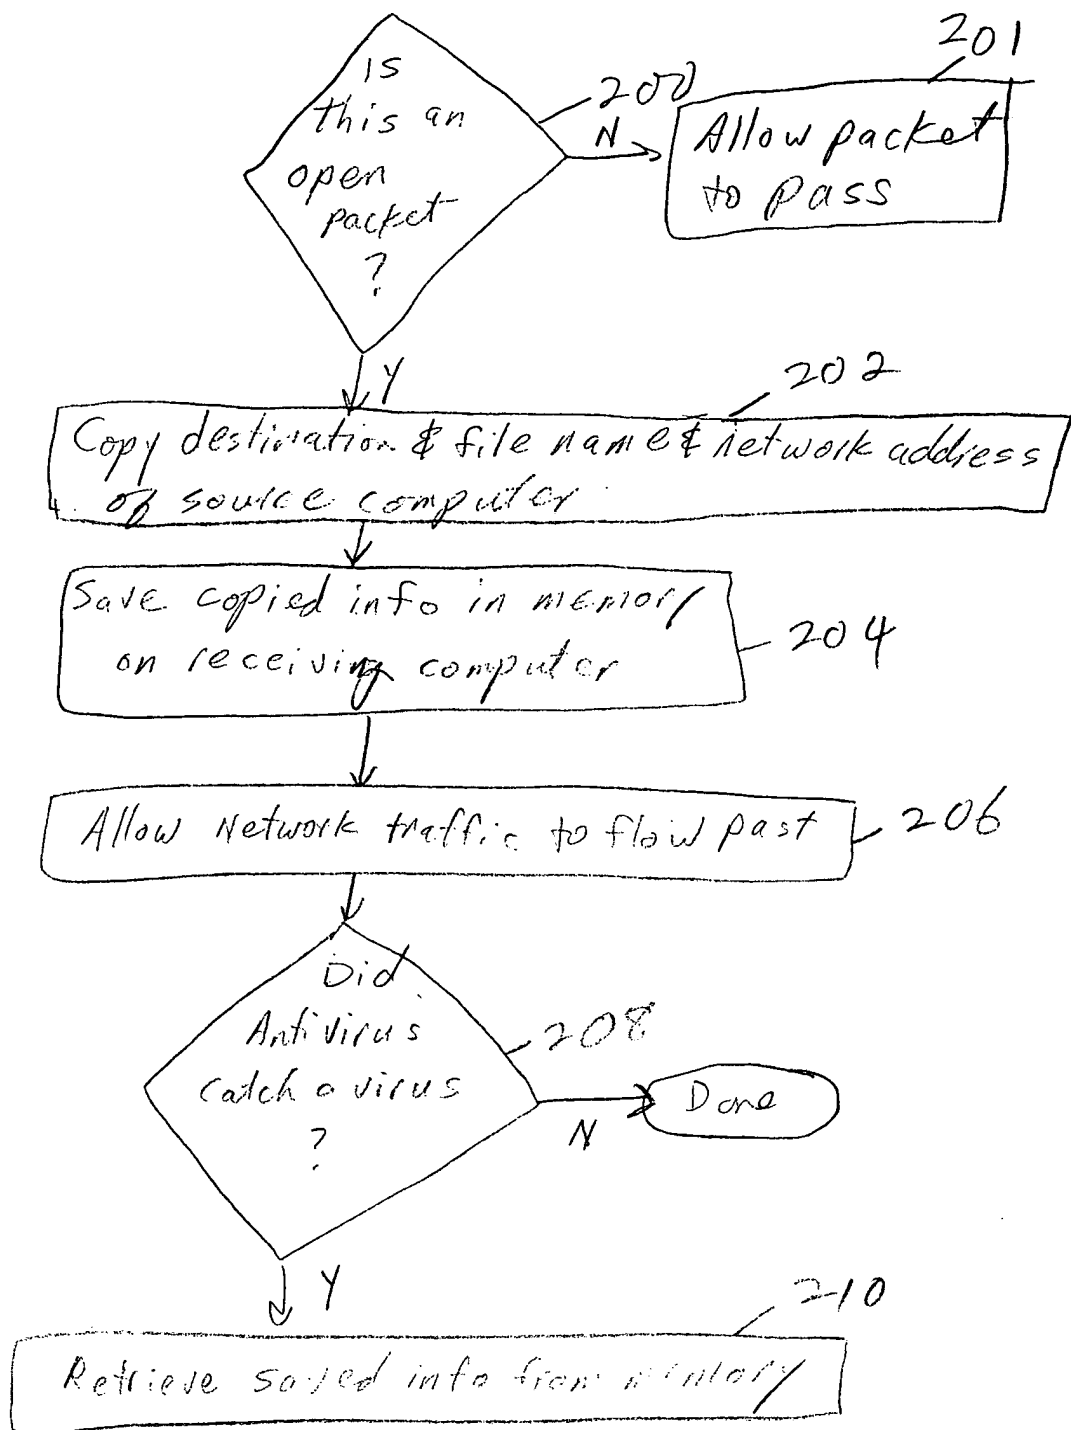 Is
this an
open
packet
?
200
N
201
Allow packet
to pass
Y
202
Copy destination & file name & network address
of source computer
Save copied info in memory
on receiving computer
204
Allow Network traffic to flow past
206
Did
Antivirus
catch a virus
?
208
N
Done
Y
210
Retrieve saved info from memory